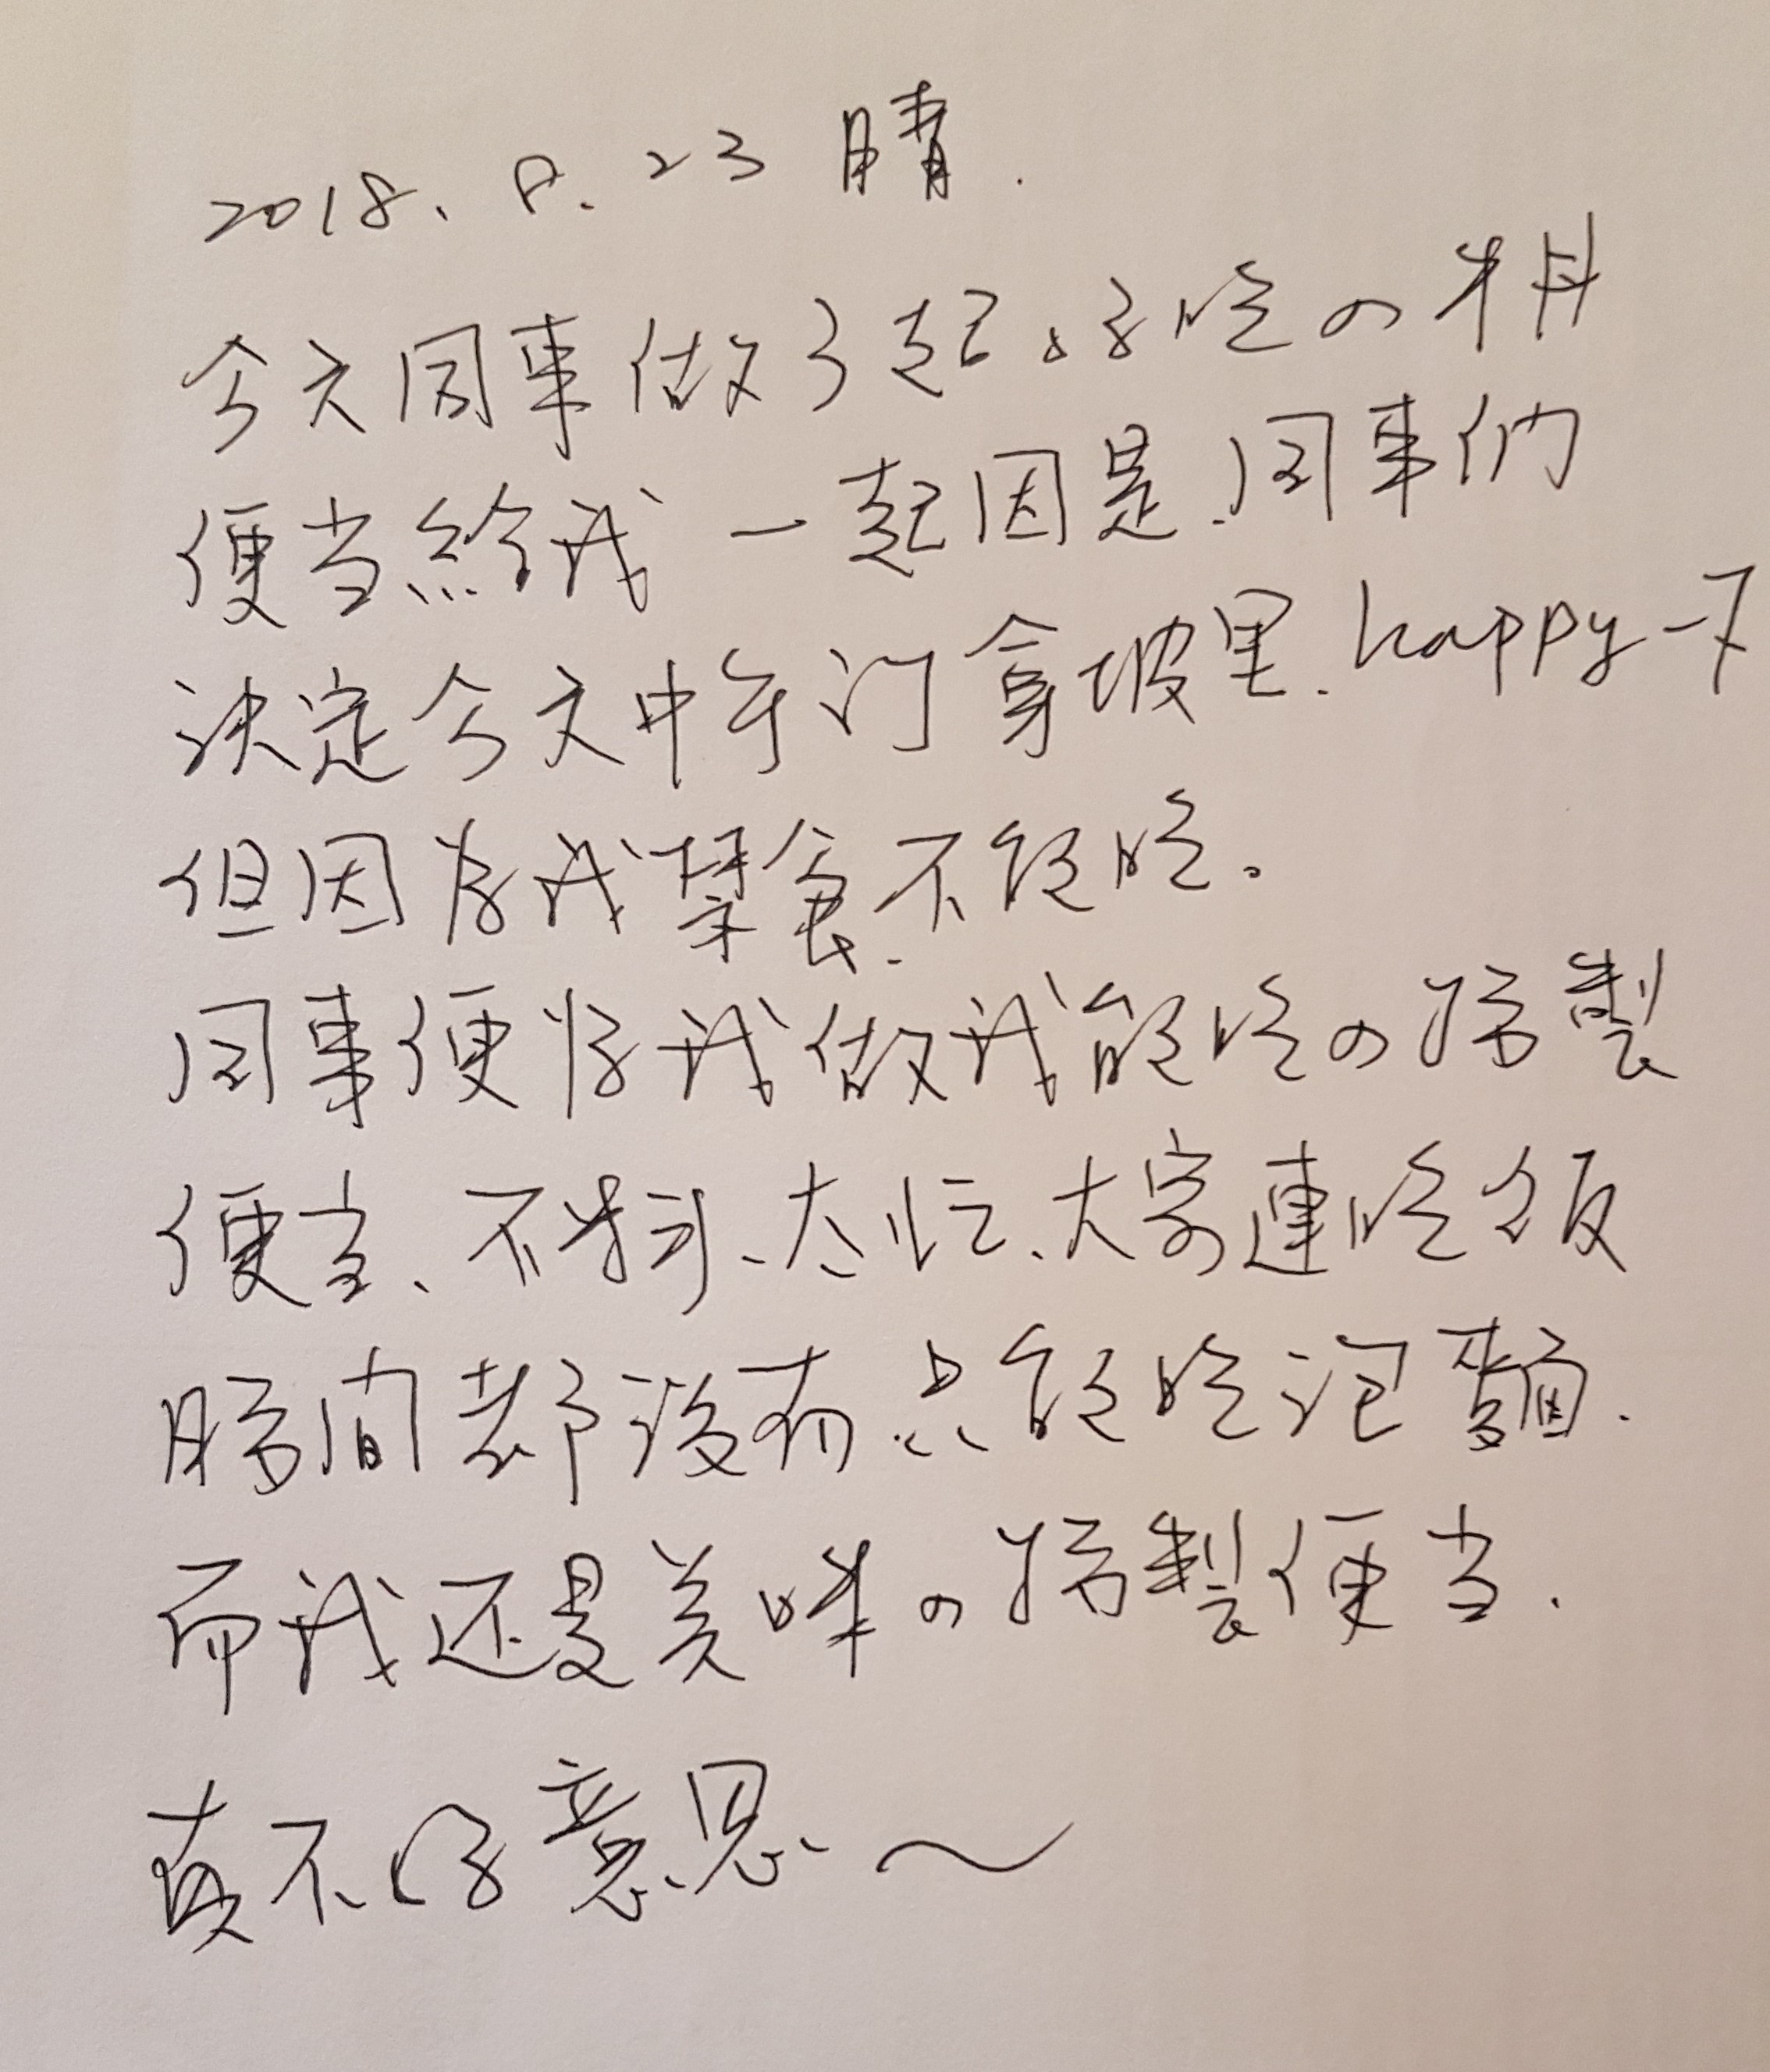 2018.8.23 晴.
今天同事做了超好吃の
便当給我 一起因是.同事們
決定今天中午订拿坡里.happy一下
但因為我禁食.不能吃。
同事便幫我做我能吃の特製
便当、不料、太忙、大家連吃飯
時間都沒有.只能吃泡麵.
而我还是美味の特製便当.
真不好意思～